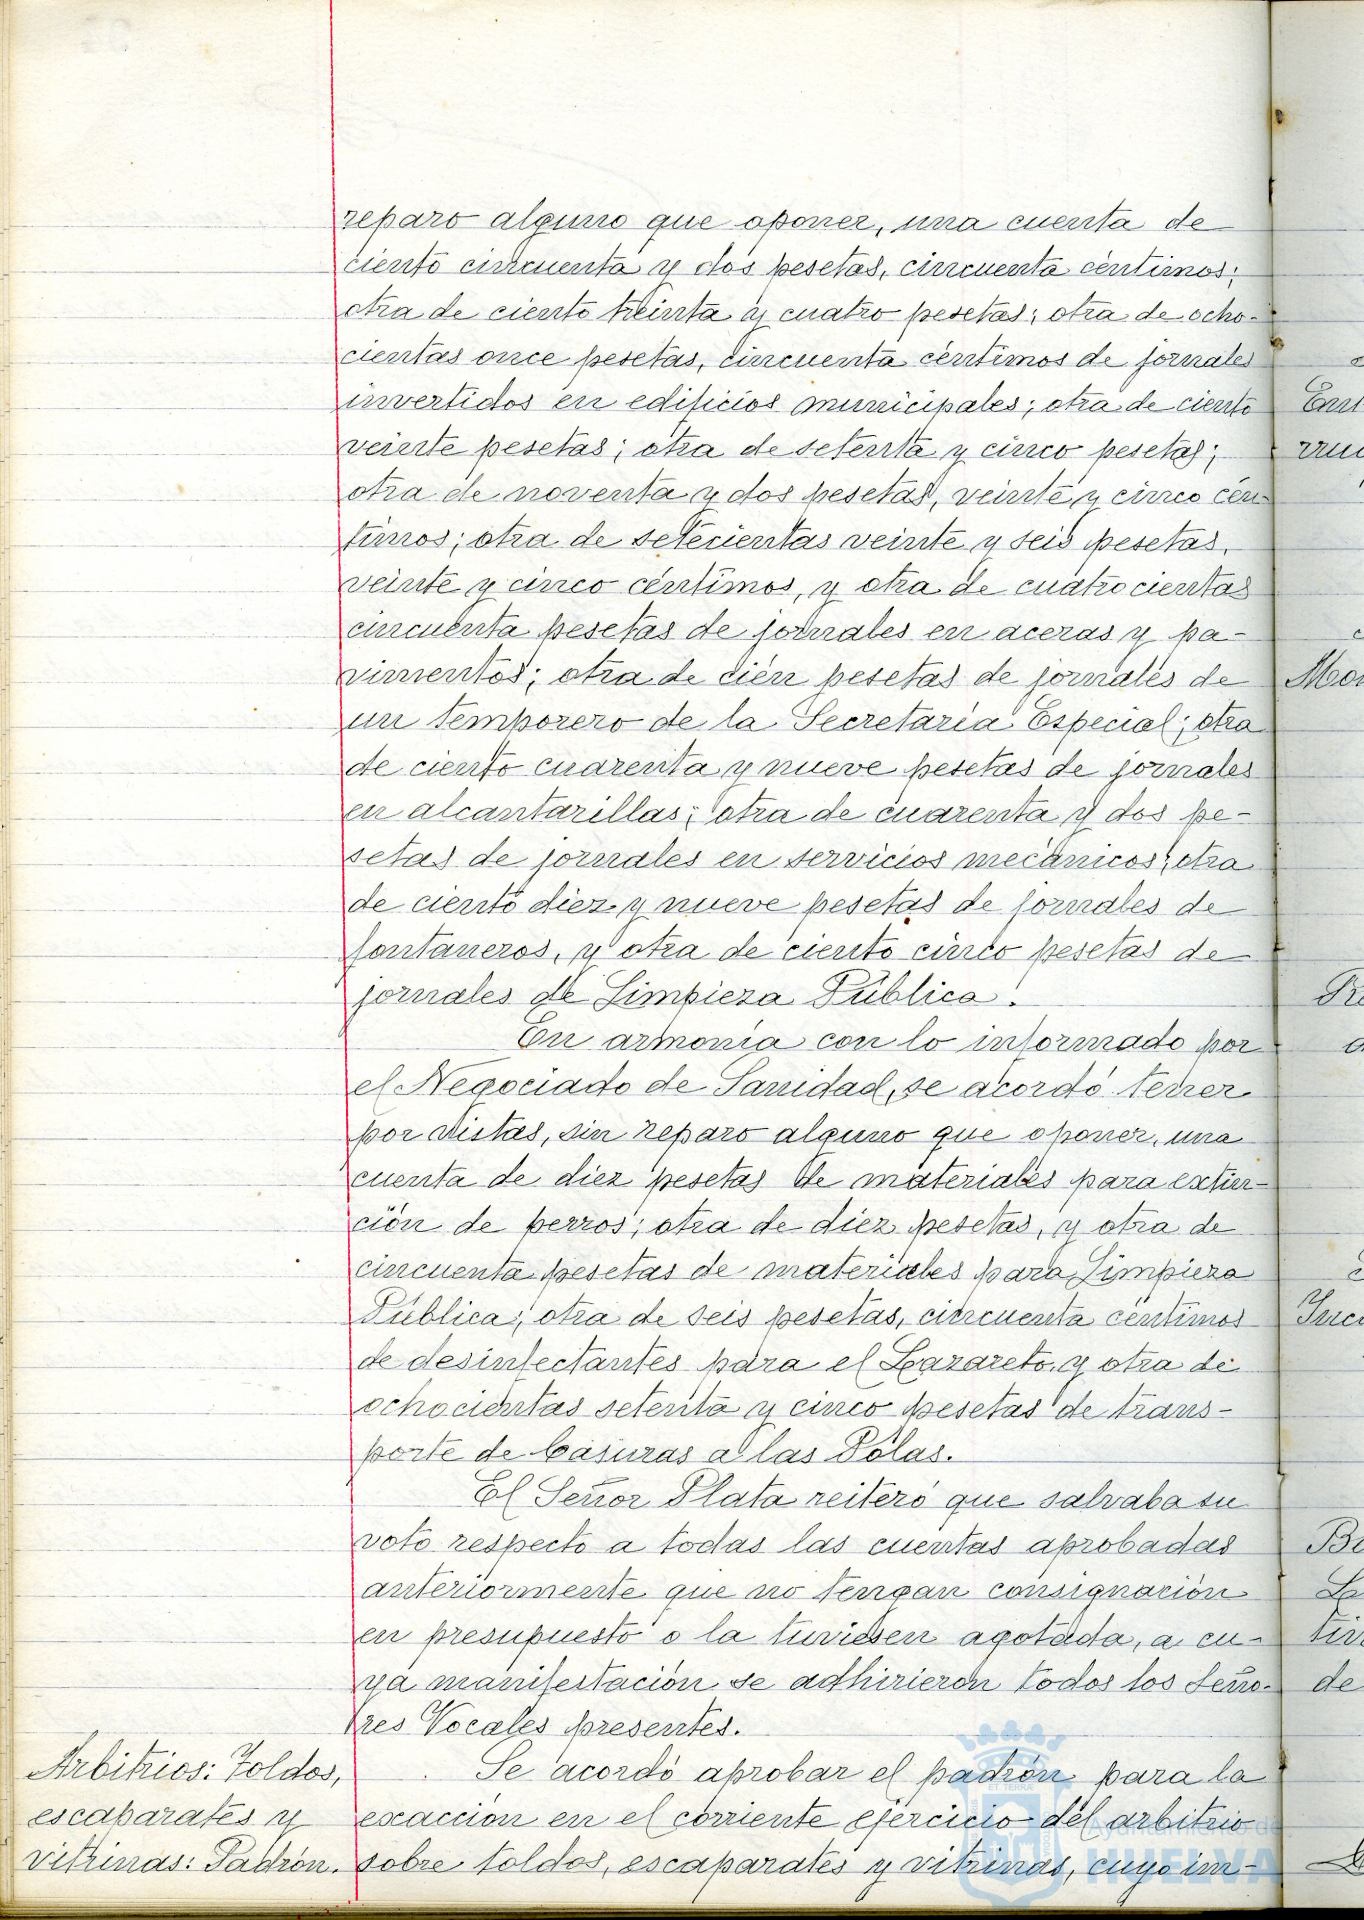 reparo alguno que oponer, una cuenta de
ciento cincuenta y dos pesetas, cincuenta céntimos;
otra de ciento treinta y cuatro pesetas; otra de ocho-
cientas once pesetas, cincuenta céntimos de jornales
invertidos en edificios municipales; otra de ciento
veinte pesetas; otra de setenta y cinco pesetas;
otra de noventa y dos pesetas, veinte y cinco cén-
timos; otra de setecientas veinte y seis pesetas,
veinte y cinco céntimos, y otra de cuatrocientas
cincuenta pesetas de jornales en aceras y pa-
vimentos; otra de cién pesetas de jornales de
un temporero de la Secretaría Especial; otra
de ciento cuarenta y nueve pesetas de jornales
en alcantarillas; otra de cuarenta y dos pe-
setas de jornales en servicios mecánicos; otra
de ciento diez y nueve pesetas de jornales de
fontaneros, y otra de ciento cinco pesetas de
jornales de Limpieza Pública.
En armonía con lo informado por
el Negociado de Sanidad, se acordó tener
por vistas, sin reparo alguno que oponer, una
cuenta de diez pesetas de materiales para extin-
ción de perros; otra de diez pesetas, y otra de
cincuenta pesetas de materiales para Limpieza
Pública; otra de seis pesetas, cincuenta céntimos
de desinfectantes para el Lazareto, y otra de
ochocientas setenta y cinco pesetas de trans-
porte de basuras a las Polas.
El Señor Plata reiteró que salvaba su
voto respecto a todas las cuentas aprobadas
anteriormente que no tengan consignación
en presupuesto o la tuviesen agotada, a cu-
ya manifestación se adhirieron todos los Seño-
res Vocales presentes.
Arbitrios: Toldos,
escaparates y
vitrinas: Padrón.
Se acordó aprobar el padrón para la
exacción en el corriente ejercicio del arbitrio
sobre toldos, escaparates y vitrinas, cuyo im-
Ayuntamiento de
HUELVA